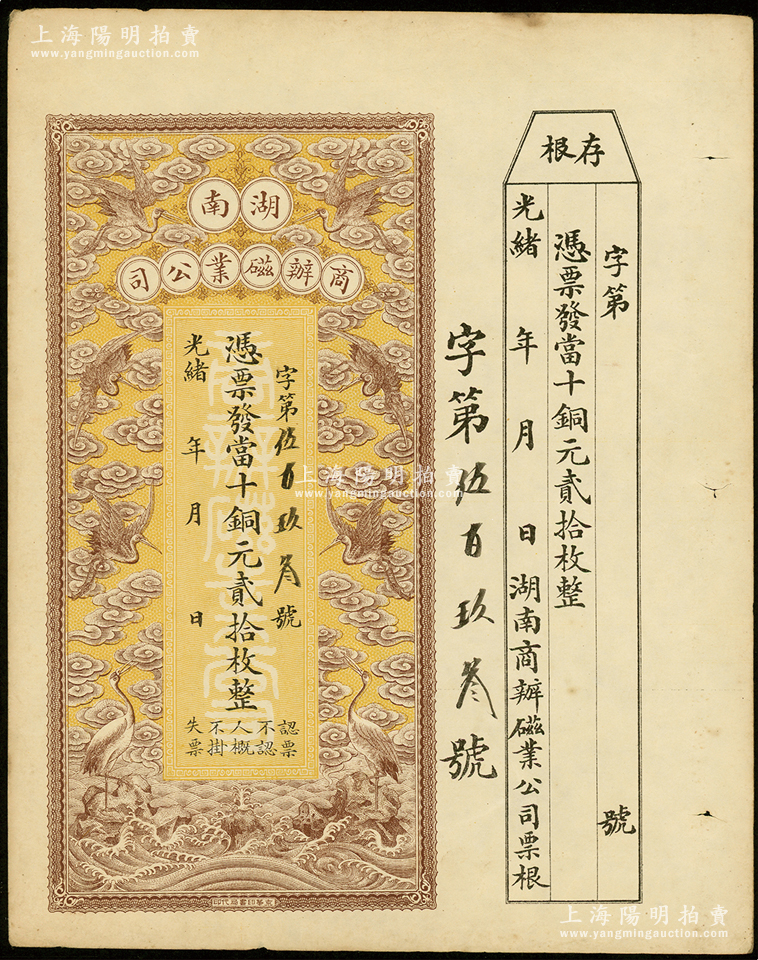 上海陽明拍賣
www.yangmingauction.com
湖南
商辦磁業公司
字第伍百玖叁號
憑票發當十銅元貳拾枚整
光緒 年 月 日
認票不認人概不掛失票
字第伍百玖叁號
存根
字第 號
憑票發當十銅元貳拾枚整
光緒 年 月 日湖南商辦磁業公司票根
上海陽明拍賣
www.yangmingauction.com
上海陽明拍賣
www.yangmingauction.com